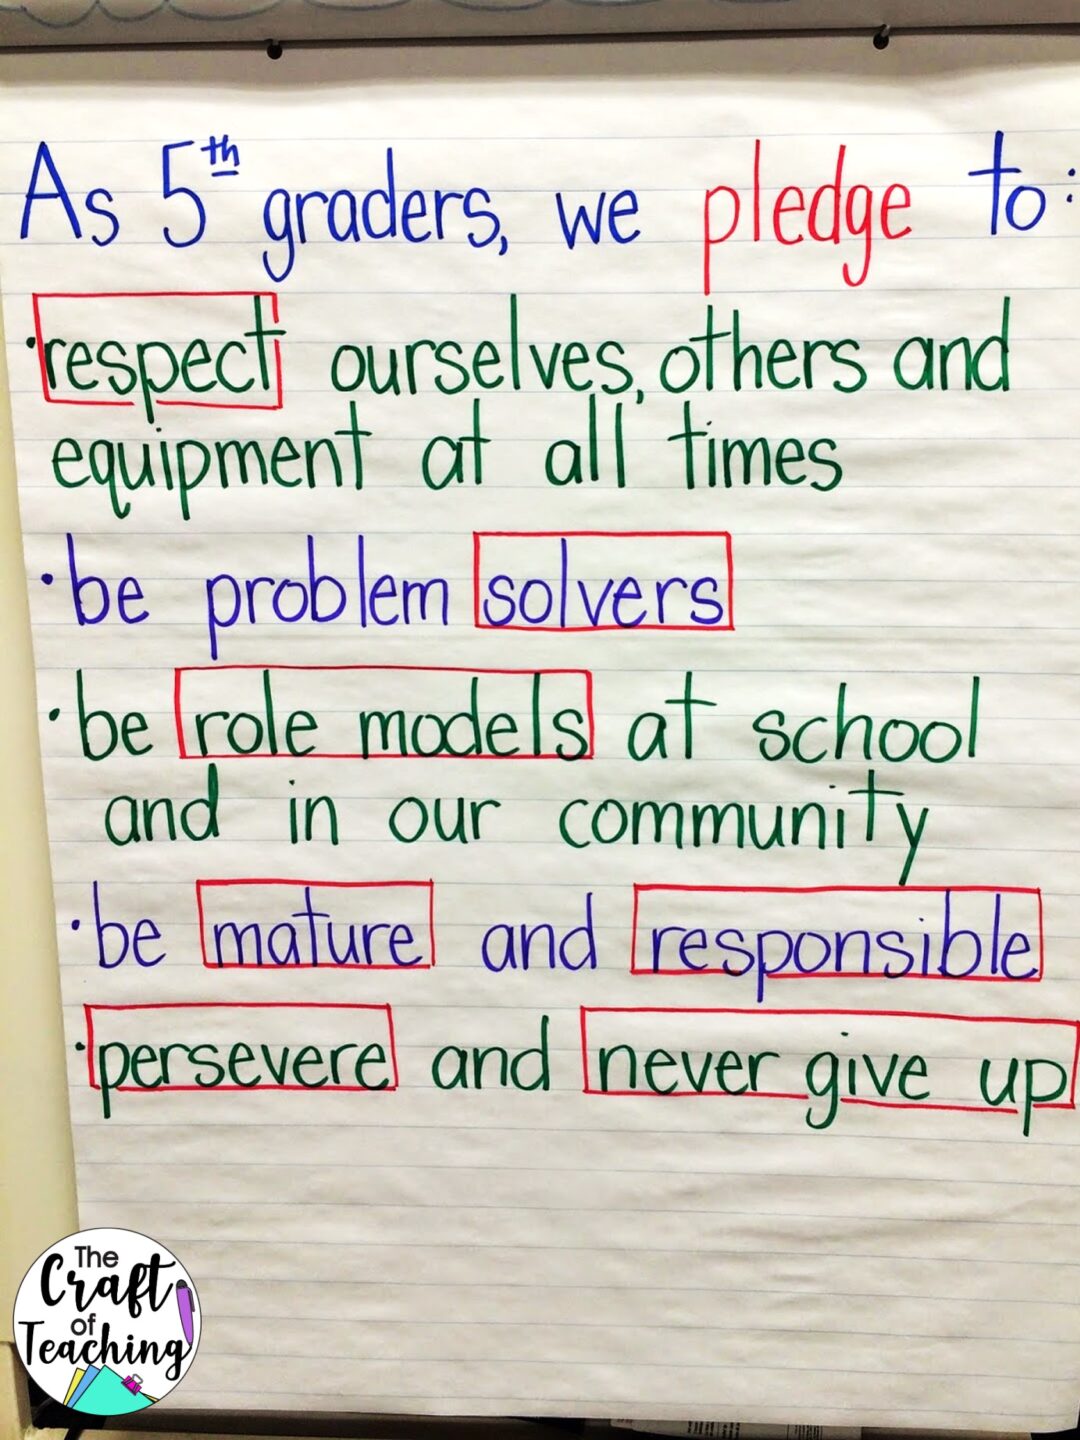 As 5th graders, we pledge to:
·respect ourselves, others and
equipment at all times
·be problem solvers
·be role models at school
and in our community
·be mature and responsible
·persevere and never give up
The
Craft
of
Teaching